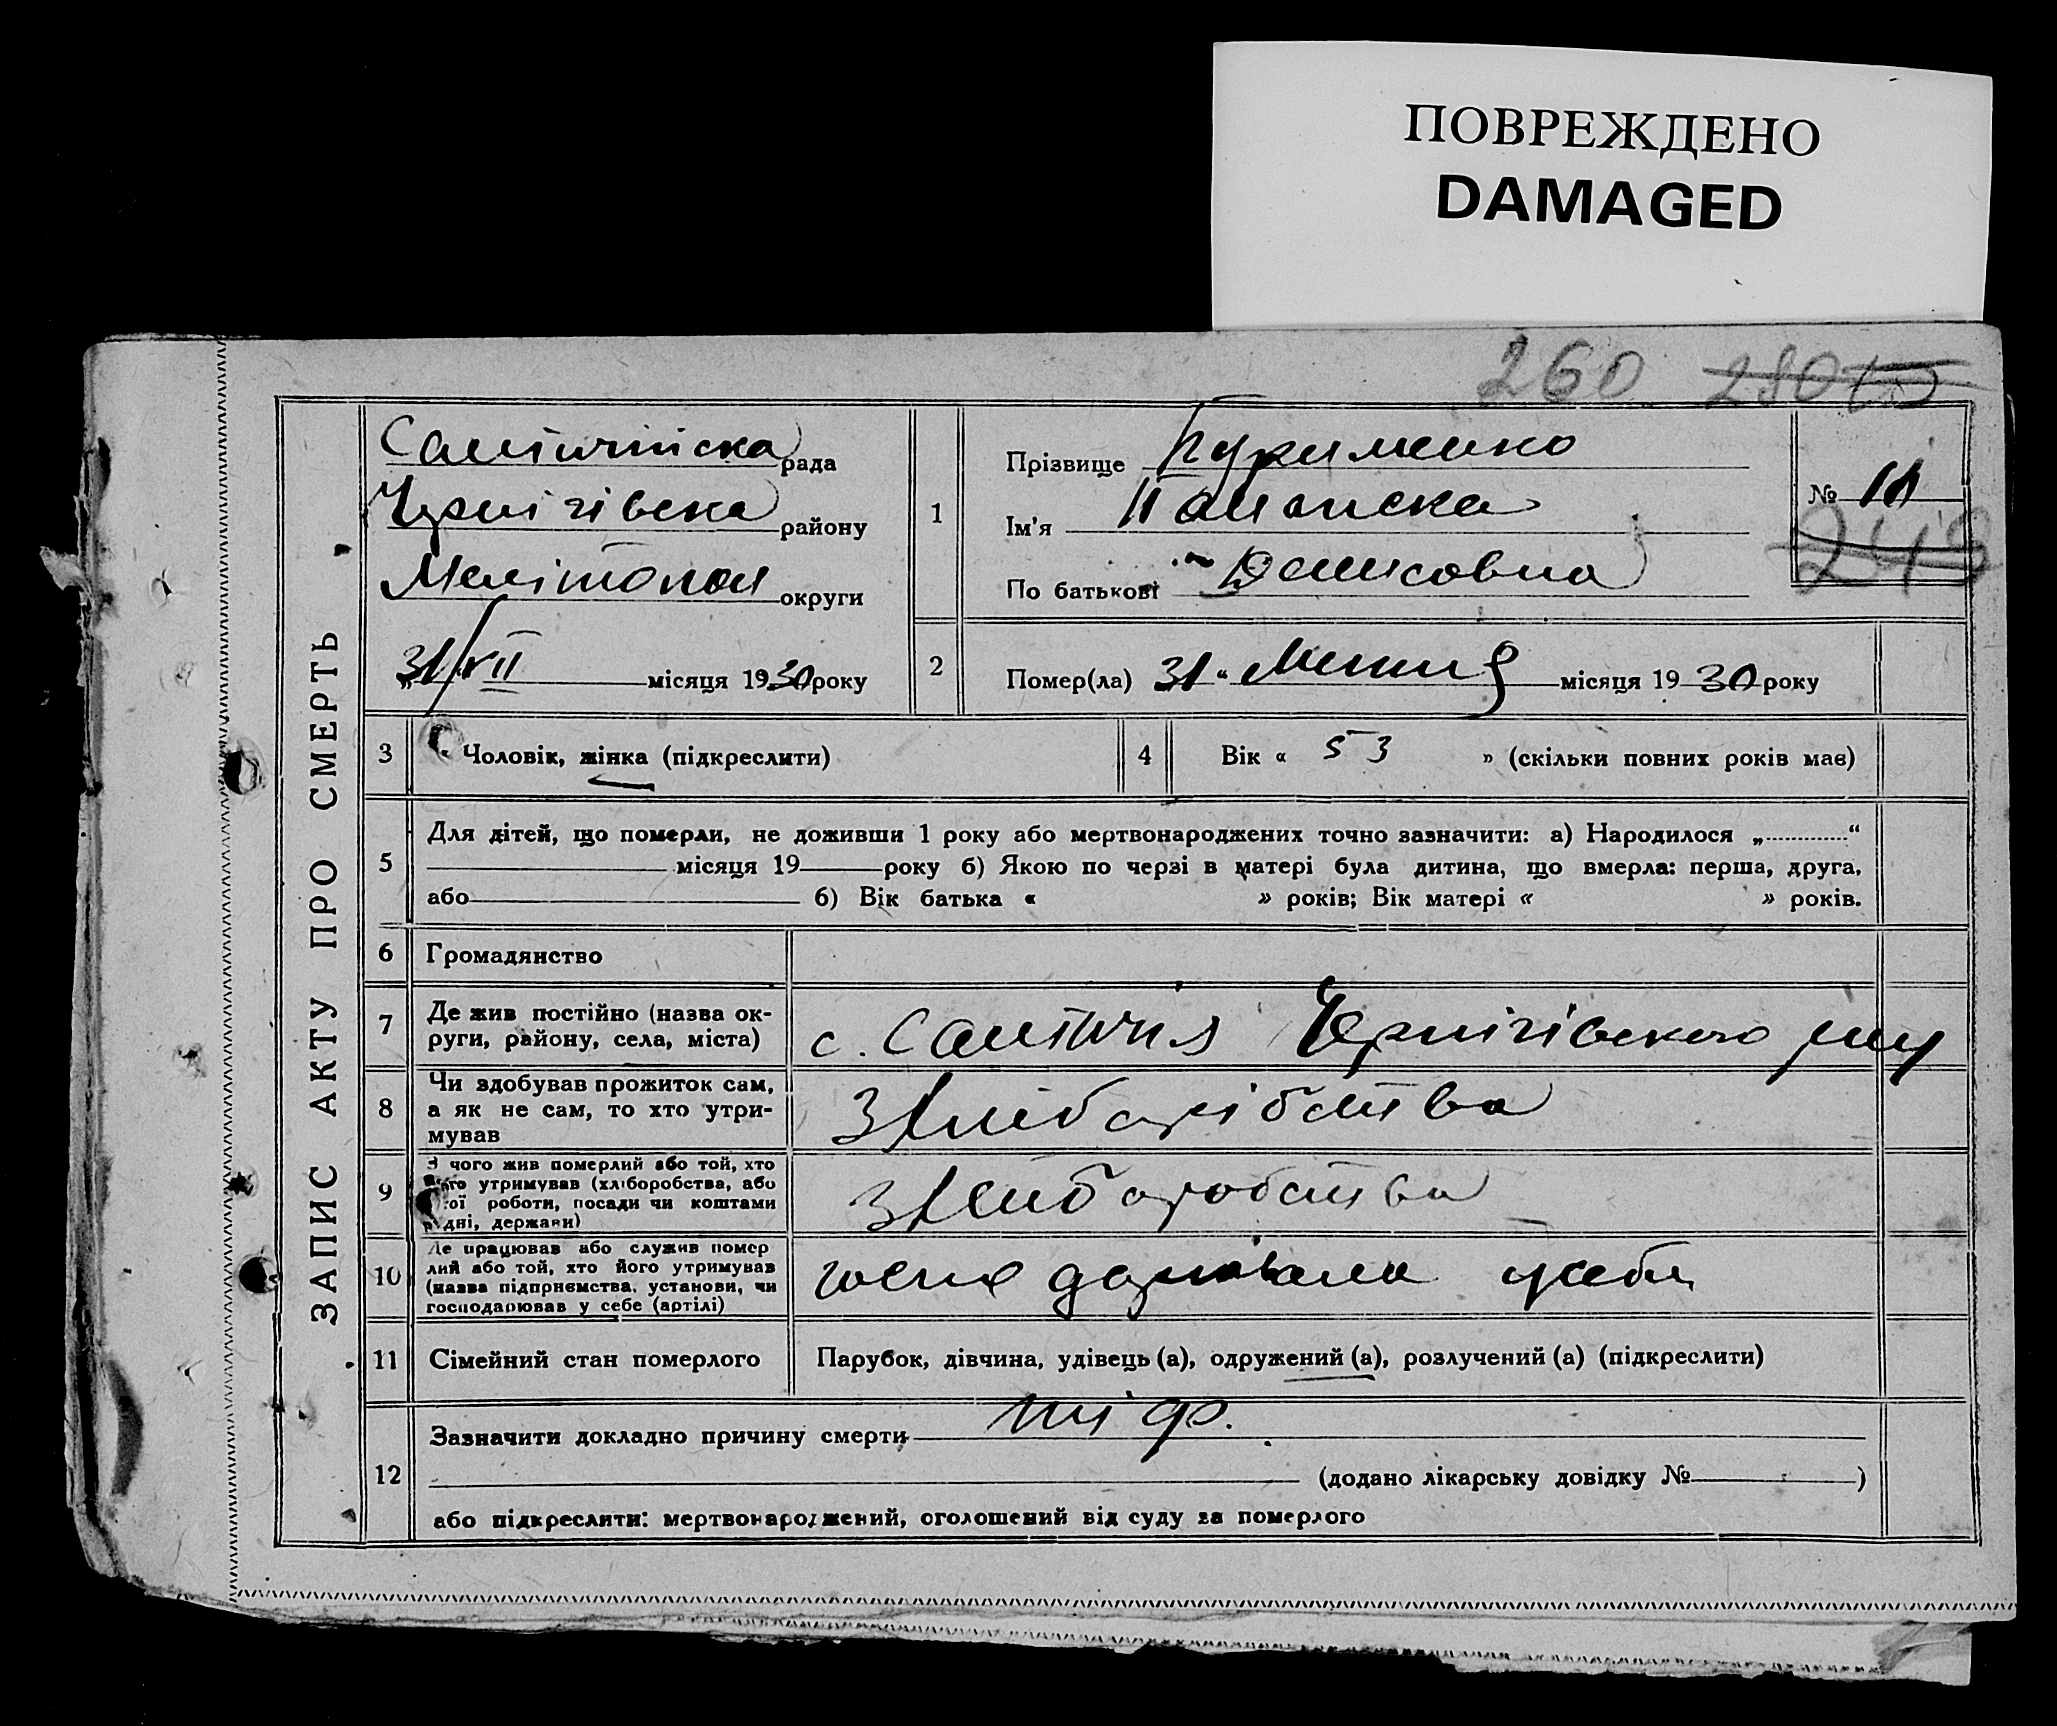 ПОВРЕЖДЕНО
DAMAGED
260 280
ЗАПИС АКТУ ПРО СМЕРТЬ
рада
Чернігівська району
Мелітопол округи
31/VII місяця 1930 року
1
Прізвище Буряменко
Ім'я Панаиска
По батькові Денисовна
№
249
2
Помер(ла) 31 " місяця 1930 року
3 Чоловік, жінка (підкреслити)
4 Вік « 53 » (скільки повних років має)
5 Для дітей, що померли, не доживши 1 року або мертвонароджених точно зазначити: а) Народилося „ “
місяця 19 року б) Якою по черзі в матері була дитина, що вмерла: перша, друга,
або б) Вік батька « » років; Вік матері « » років.
6 Громадянство
7 Де жив постійно (назва ок-
руги, району, села, міста)
с. Чернігівского рну
8 Чи здобував прожиток сам,
а як не сам, то хто утри-
мував
З хліборібства
9 З чого жив померлий або той, хто
його утримував (хліборобства, або
якої роботи, посади чи коштами
рідні, держави)
З хлиборобства
10 Де працював або служив помер
лий або той, хто його утримував
(назва підприємства, установи, чи
господарював у себе (артілі)
господарювала у себя
11 Сімейний стан померлого
Парубок, дівчина, удівець (а), одружений (а), розлучений (а) (підкреслити)
12 Зазначити докладно причину смерти тіф.
(додано лікарську довідку № )
або підкреслити: мертвонароджений, оголошений від суду за померлого